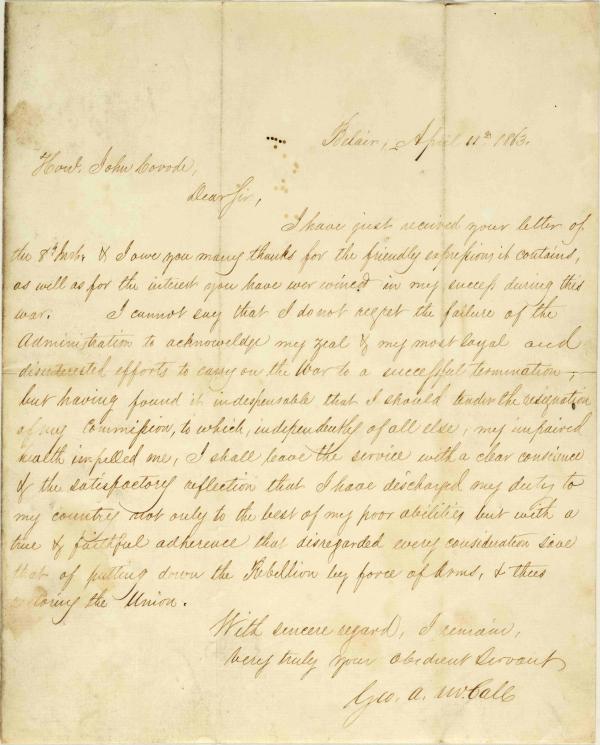 Belair, April 11th 1863.
Honl. John Covode,
Dear Sir,
I have just received your letter of
the 8th Inst. & I owe you many thanks for the friendly expressions it contains,
as well as for the interest you have ever evinced in my success during this
war. I cannot say that I do not regret the failure of the
Administration to acknowledge my zeal & my most loyal and
disinterested efforts to carry on the War to a successful termination;
but having found it indispensable that I should tender the resignation
of my Commission, to which, independently of all else, my impaired
health impelled me, I shall leave the service with a clear conscience
& the satisfactory reflection that I have discharged my duty to
my country not only to the best of my poor abilities but with a
true & faithful adherence that disregarded every consideration save
that of putting down the Rebellion by force of Arms, & thus
restoring the Union.
With sincere regard, I remain,
very truly your obedient Servant
Geo. A. McCall